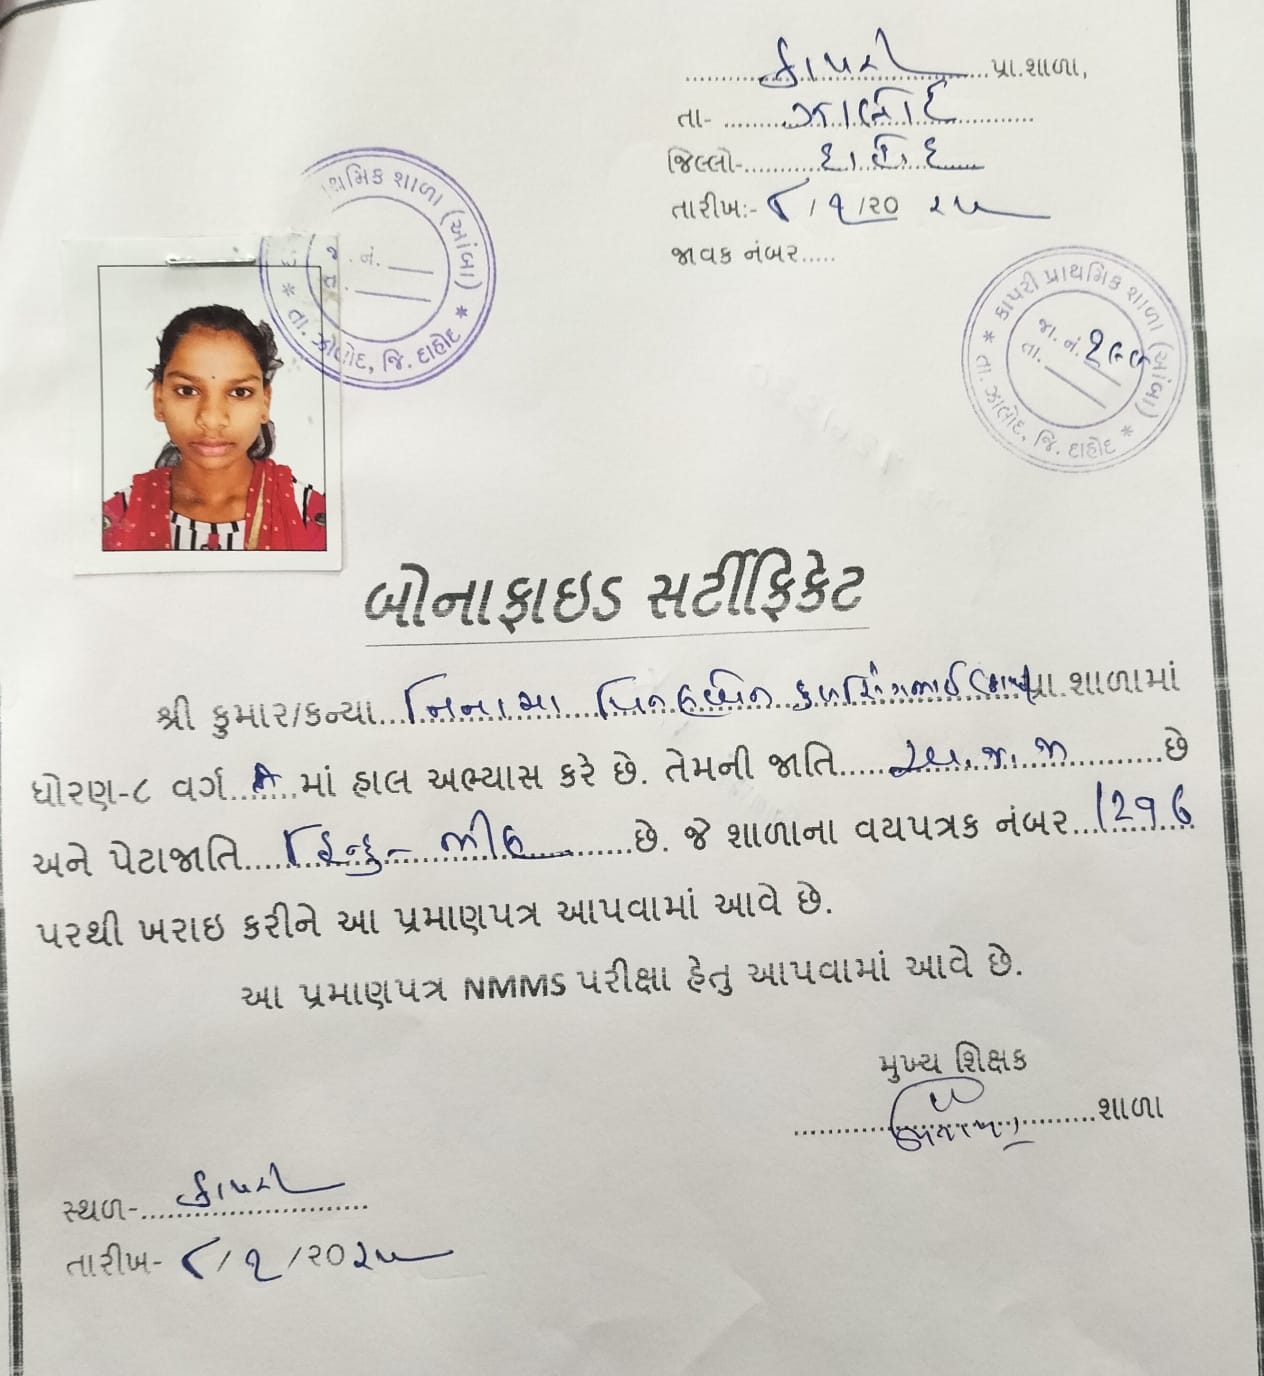 કાપરી પ્રા.શાળા,
તા- ઝાલોદ
જિલ્લો- દાહોદ
તારીખ:- ૮/૧/૨૦૨૫
જાવક નંબર.....
પ્રાથમિક શાળા (આંબા)
જા. નં.
તા.
* તા. ઝાલોદ, જિ. દાહોદ *
* કાપરી પ્રાથમિક શાળા (આંબા) *
જા. નં.
તા.
તા. ઝાલોદ, જિ. દાહોદ
બોનાફાઇડ સર્ટીફિકેટ
શ્રી કુમાર/કન્યા... નિનામા પ્રા.શાળામાં
ધોરણ-૮ વર્ગ માં હાલ અભ્યાસ કરે છે. તેમની જાતિ..... અ.જ.જા છે
અને પેટાજાતિ.... હિન્દુ - ભીલ છે. જે શાળાના વયપત્રક નંબર... 1296
પરથી ખરાઇ કરીને આ પ્રમાણપત્ર આપવામાં આવે છે.
આ પ્રમાણપત્ર NMMS પરીક્ષા હેતુ આપવામાં આવે છે.
મુખ્ય શિક્ષક
શાળા
સ્થળ- કાપરી
તારીખ- ૮/૧/૨૦૨૫